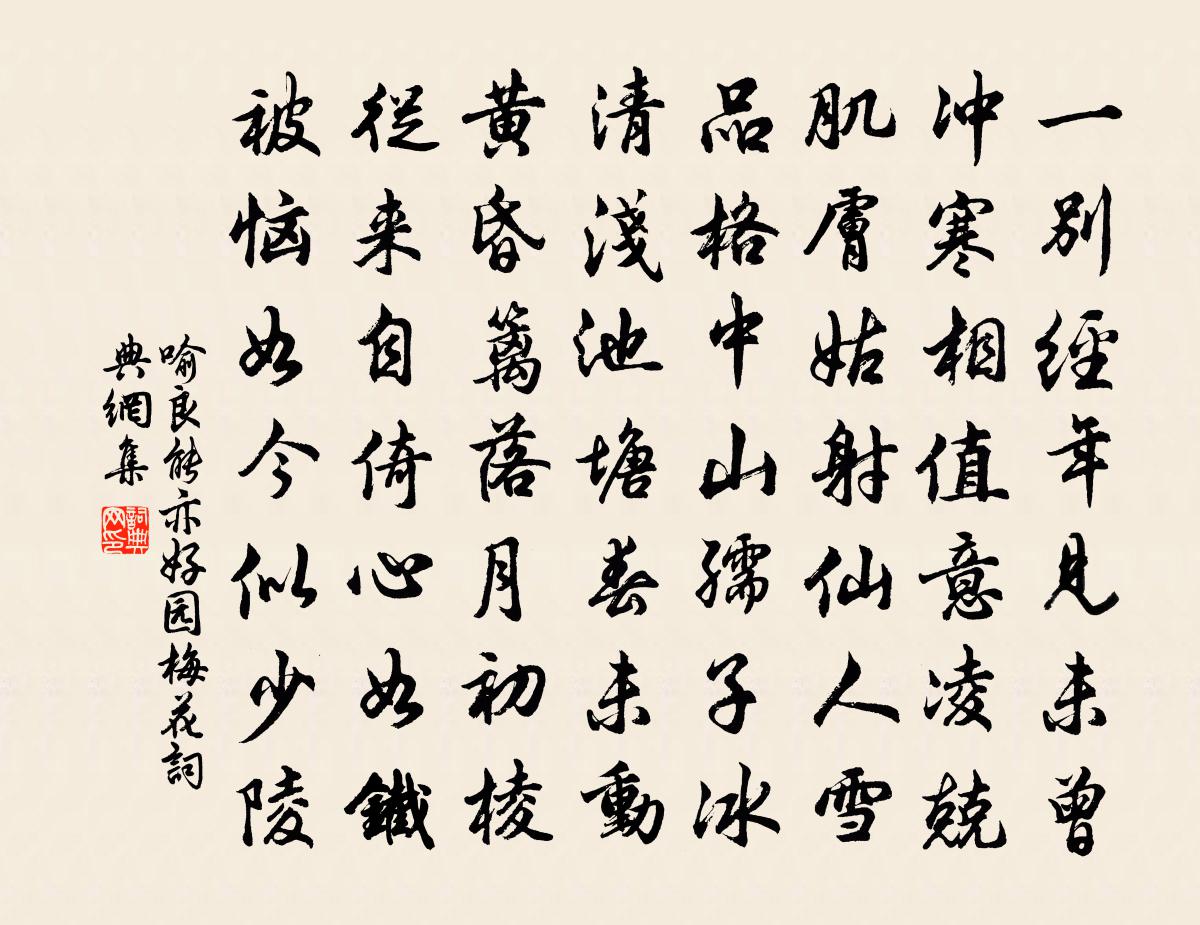 一別經年見未曾
冲寒相值意凌兢
肌膚姑射仙人雪
品格中山孺子冰
清淺池塘春未動
黄昏篱落月初棱
從来自倚心如鐵
被恼如今似少陵
喻良能亦好园梅花詞
典網集
詞典
网印